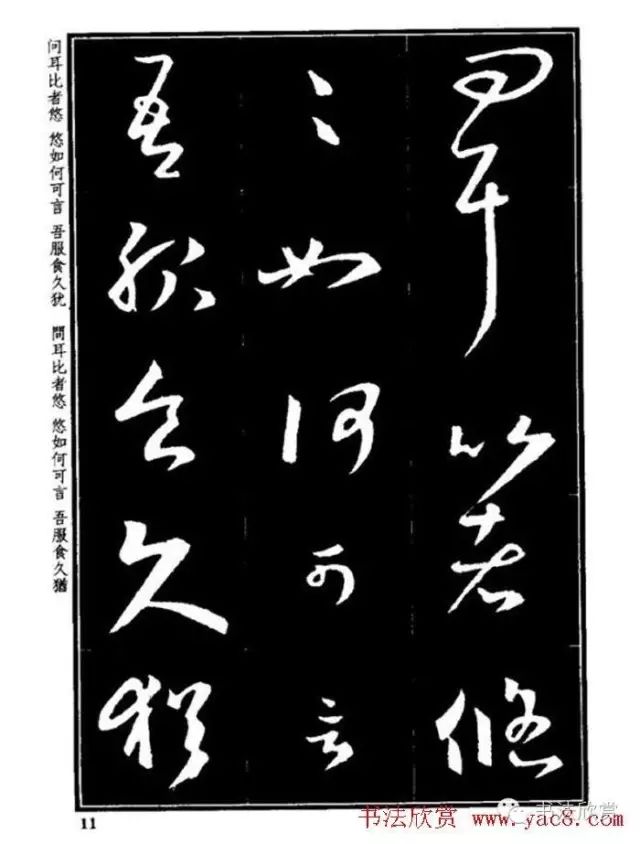 問耳比者悠
〻如何可言
吾服食久猶
问耳比者悠 悠如何可言 吾服食久犹
問耳比者悠 悠如何可言 吾服食久猶
11
书法欣赏
书法欣赏 www.yac8.com